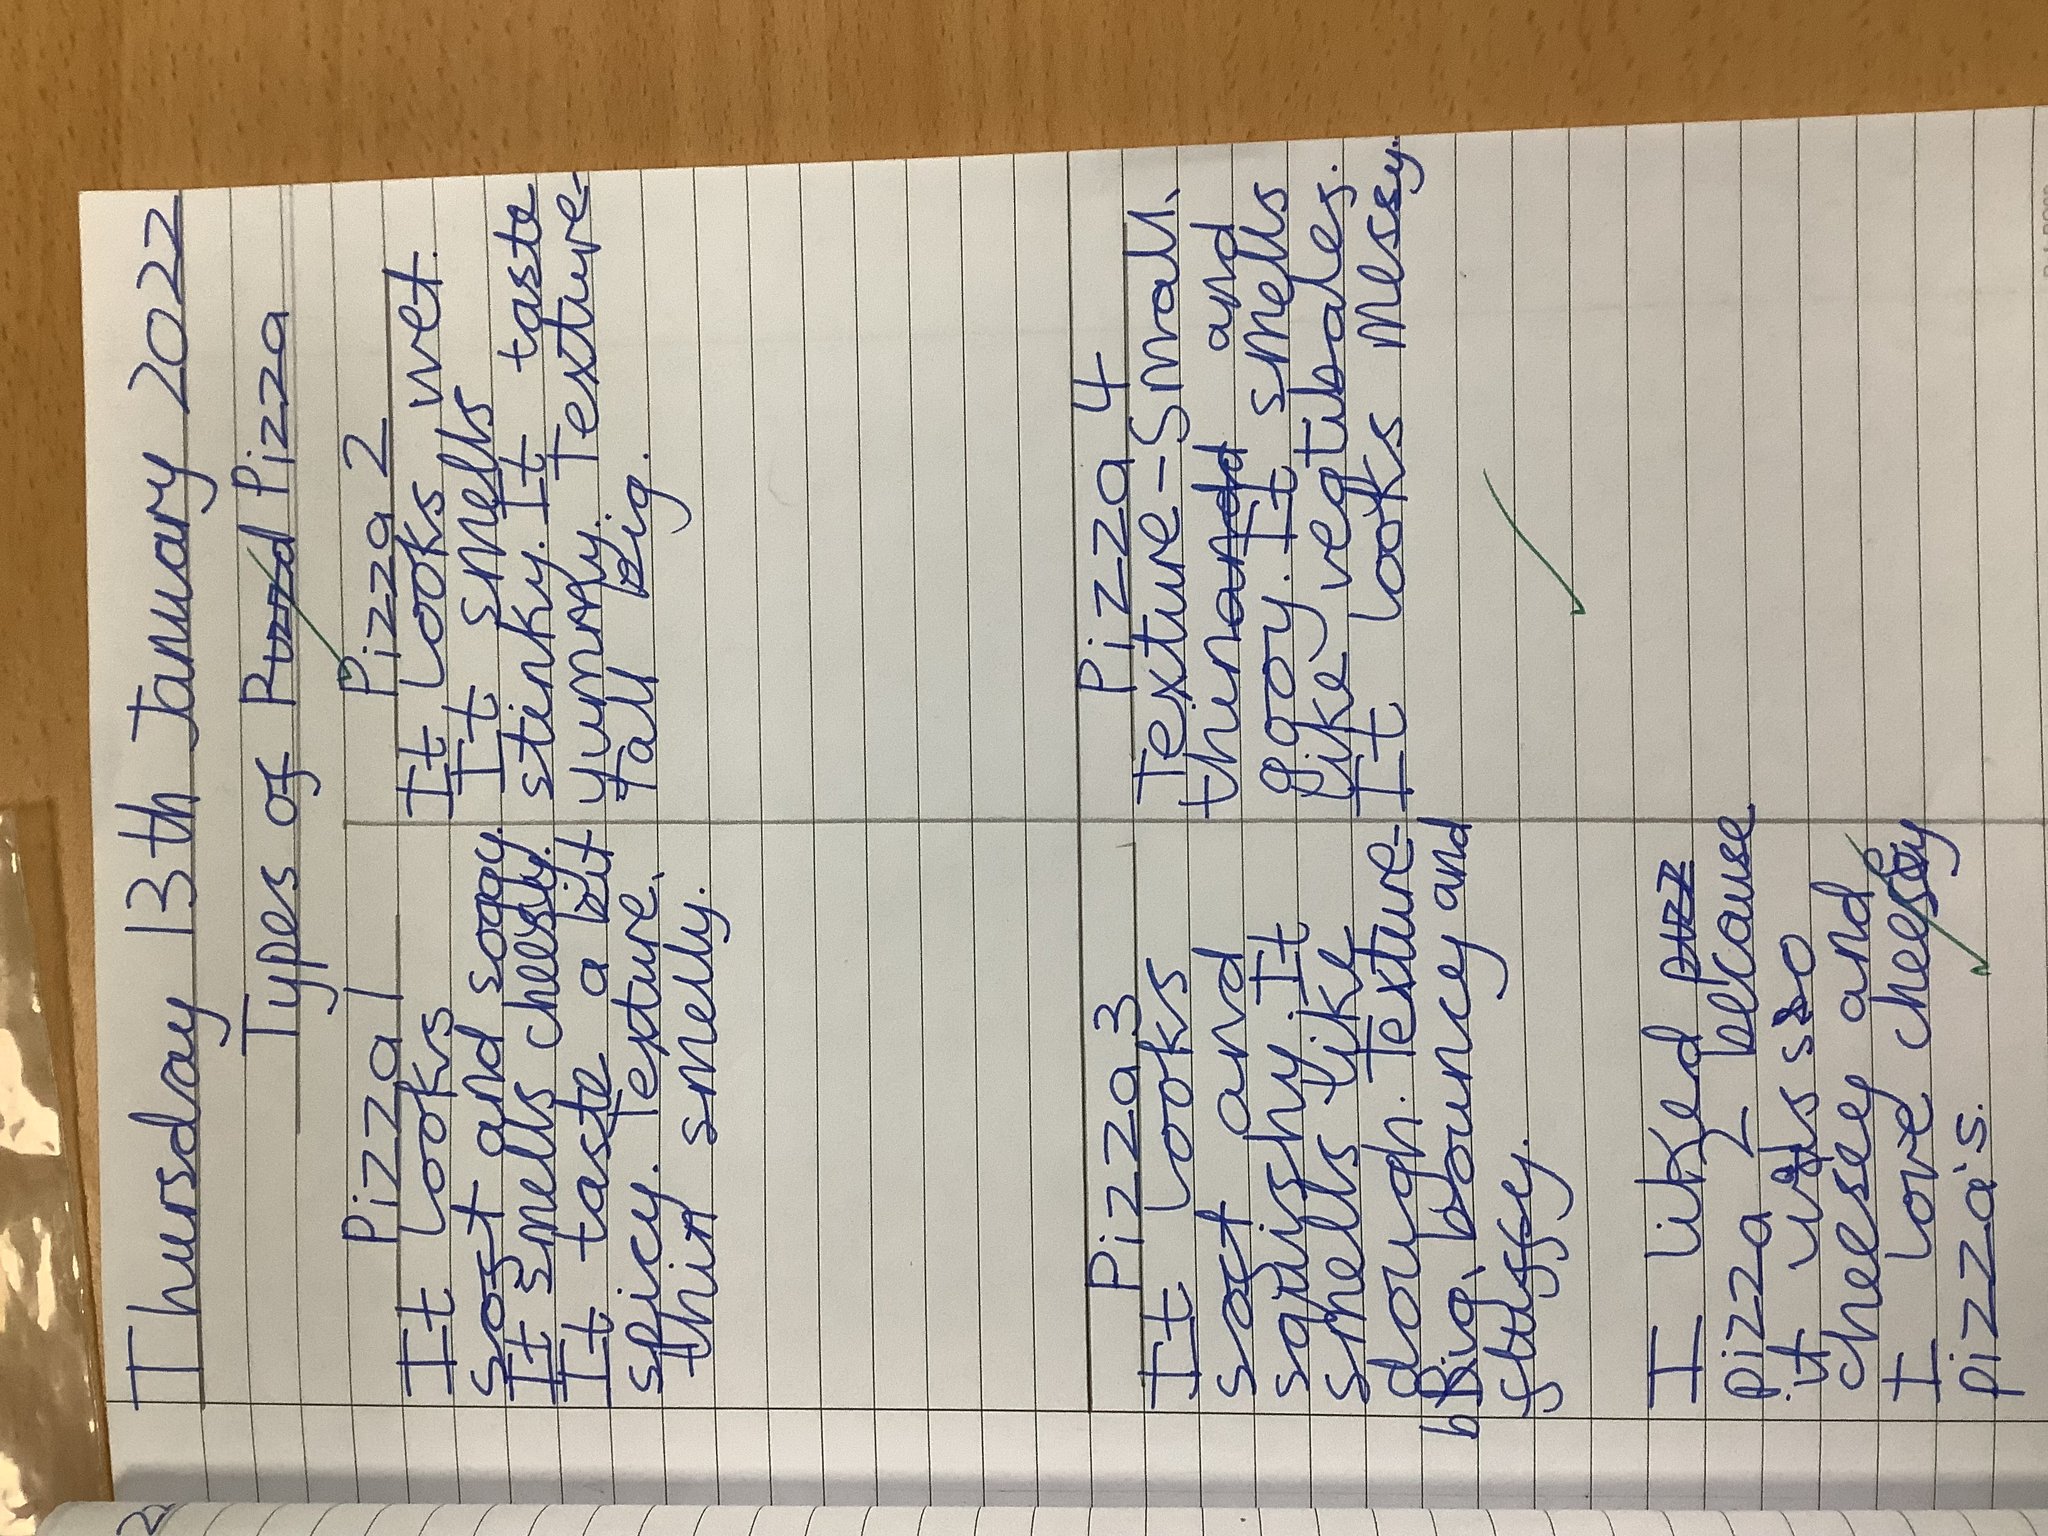 Thursday 13th January 2022
Types of Pizza
Pizza 1
It looks
soft and soggy.
It smells cheesy.
It taste a bit
spicy. Texture,
thin smelly.
Pizza 2
It looks wet.
It smells
stinky. It taste
yummy. Texture-
Tall big.
Pizza 3
It looks
soft and
squishy. It
smells like
dough. Texture-
Big, bouncy and
fluffy.
I liked
pizza 2 because
it was so
cheesey and
I love cheesey
pizza's.
Pizza 4
Texture-Small,
thin and
gooy. It smells
like vegtibales.
It looks messy.